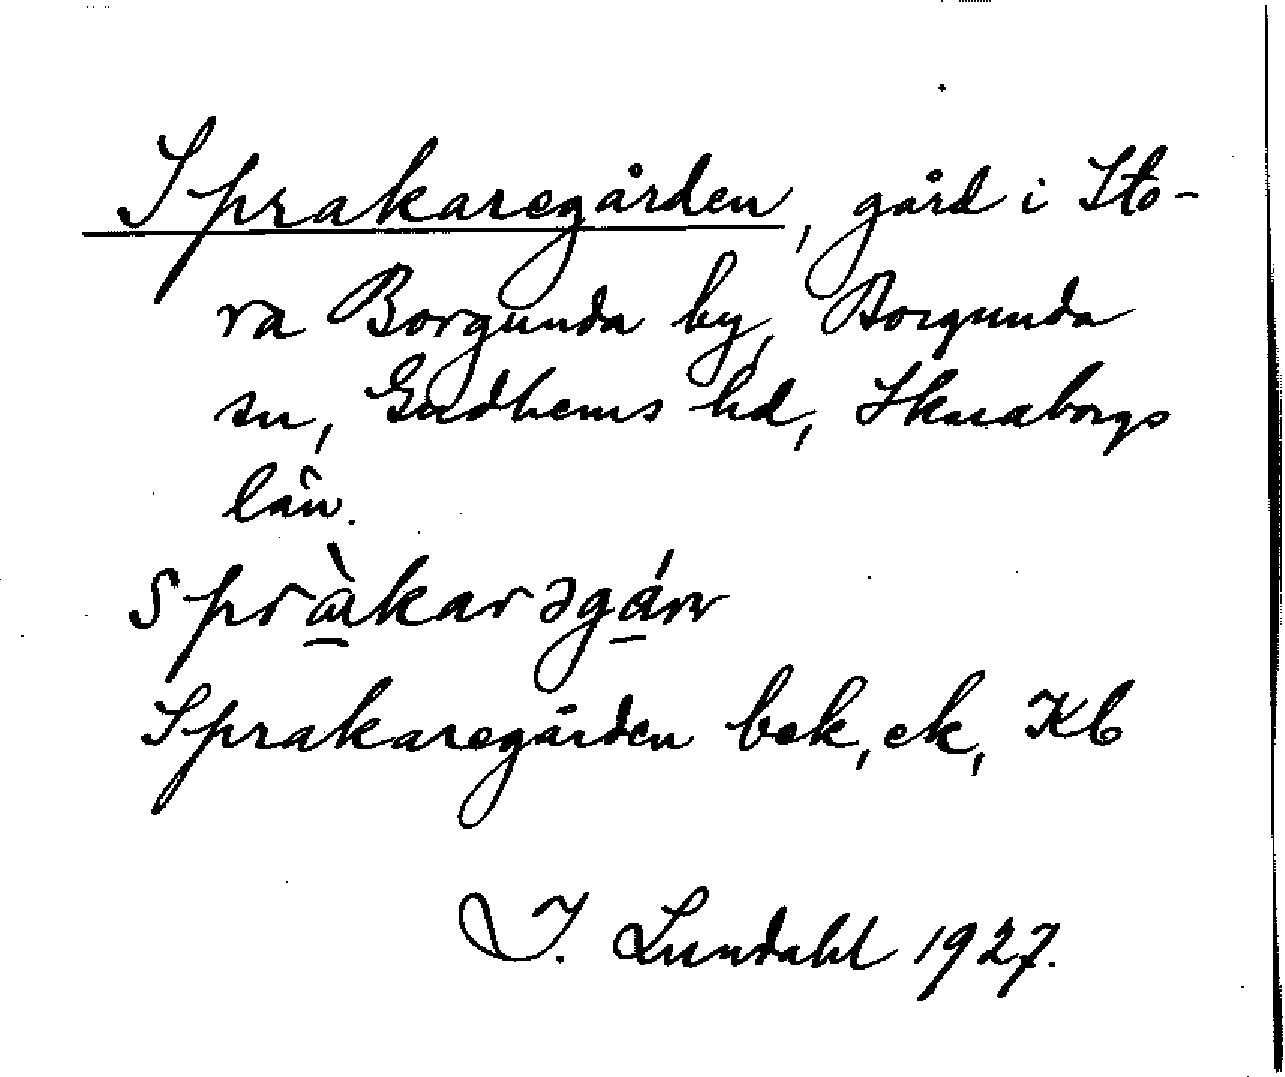 Sprakaregården, gård i Sto-
ra Borgunda by, Borgunda
sn, Gudhems hd, Skaraborgs
län.
sprà̱karəgá̱rn
Sprakaregården bek, ek, Kb
I. Lundahl 1927.